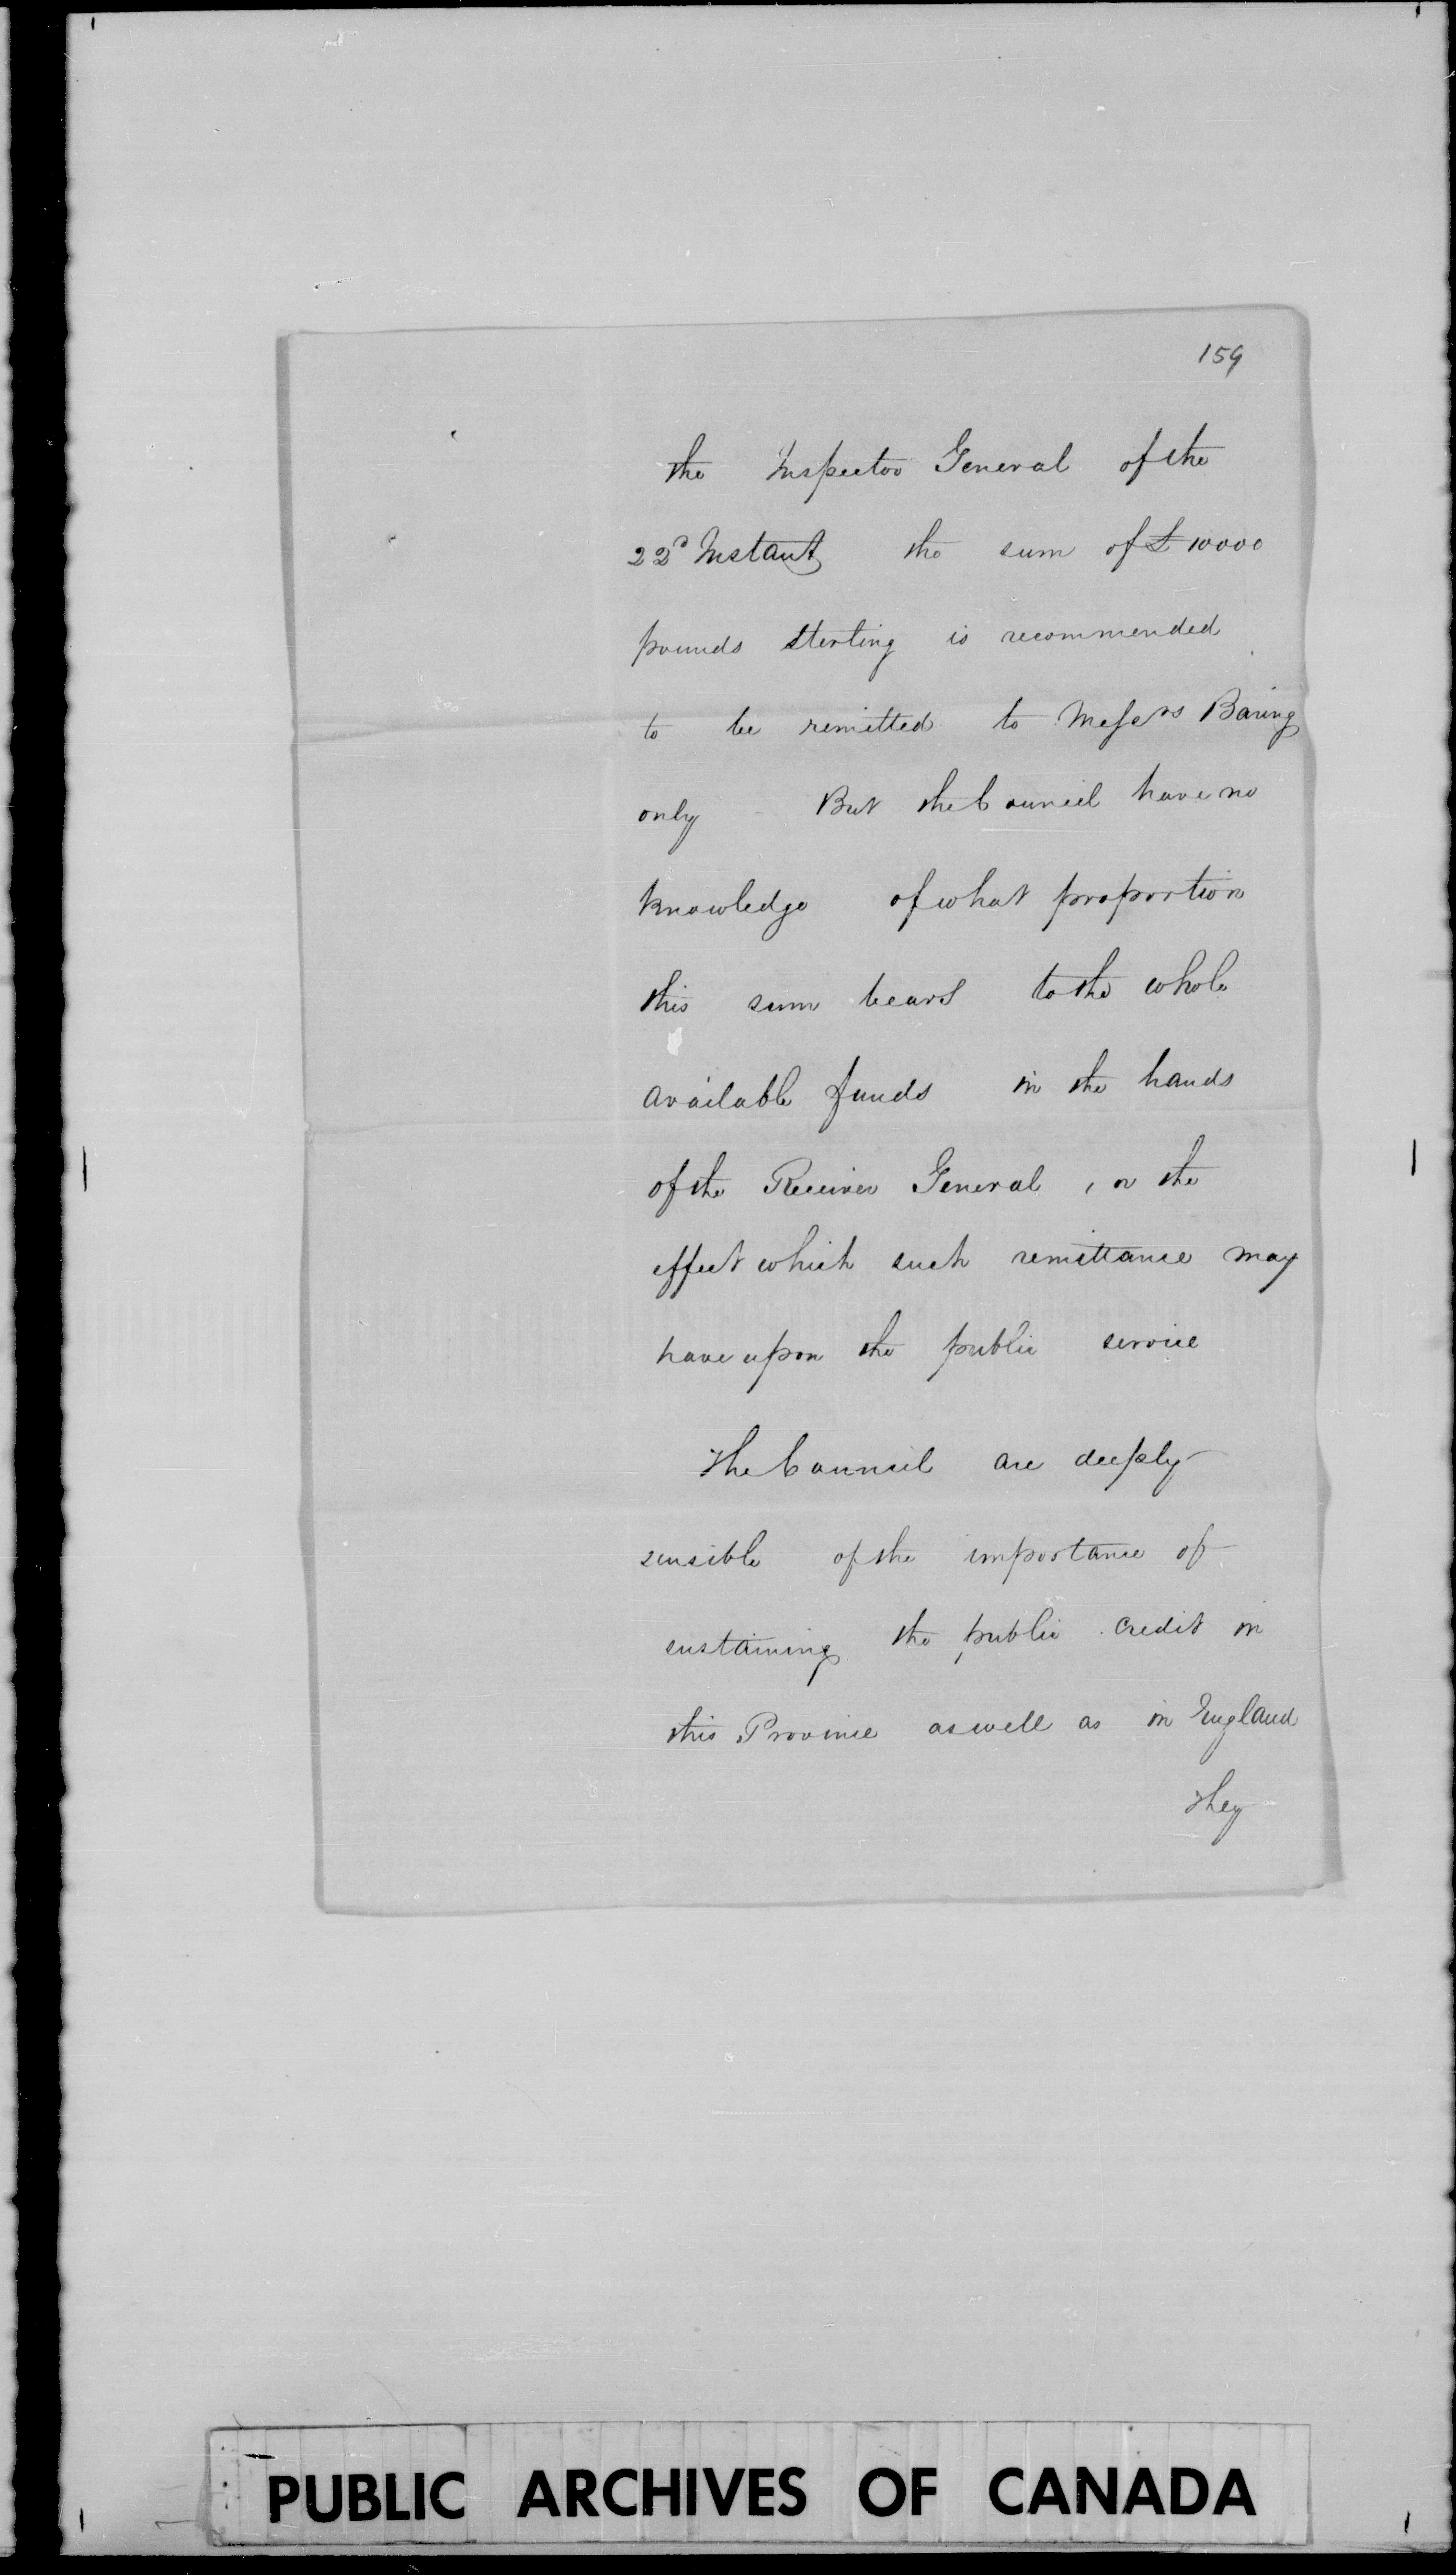 159
the Inspector General of the
22d Instant the sum of £10000
pounds sterling is recommended
to be remitted to Messrs Baring
only But the Council have no
knowledge of what proportion
this sum bears to the whole
available funds in the hands
of the Receiver General, or the
effect which such remittance may
have upon the public service
The Council are deeply
sensible of the importance of
sustaining the public credit in
this Province as well as in England
They
PUBLIC ARCHIVES OF CANADA